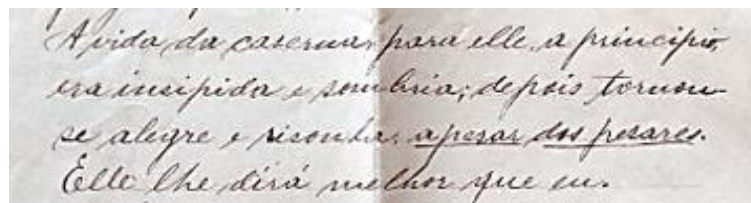 A vida da caserna, para elle, a principio,
era insipida e sombria; depois tornou-
se alegre e risonha, apezar dos pezares.
Elle lhe dirá melhor que eu.